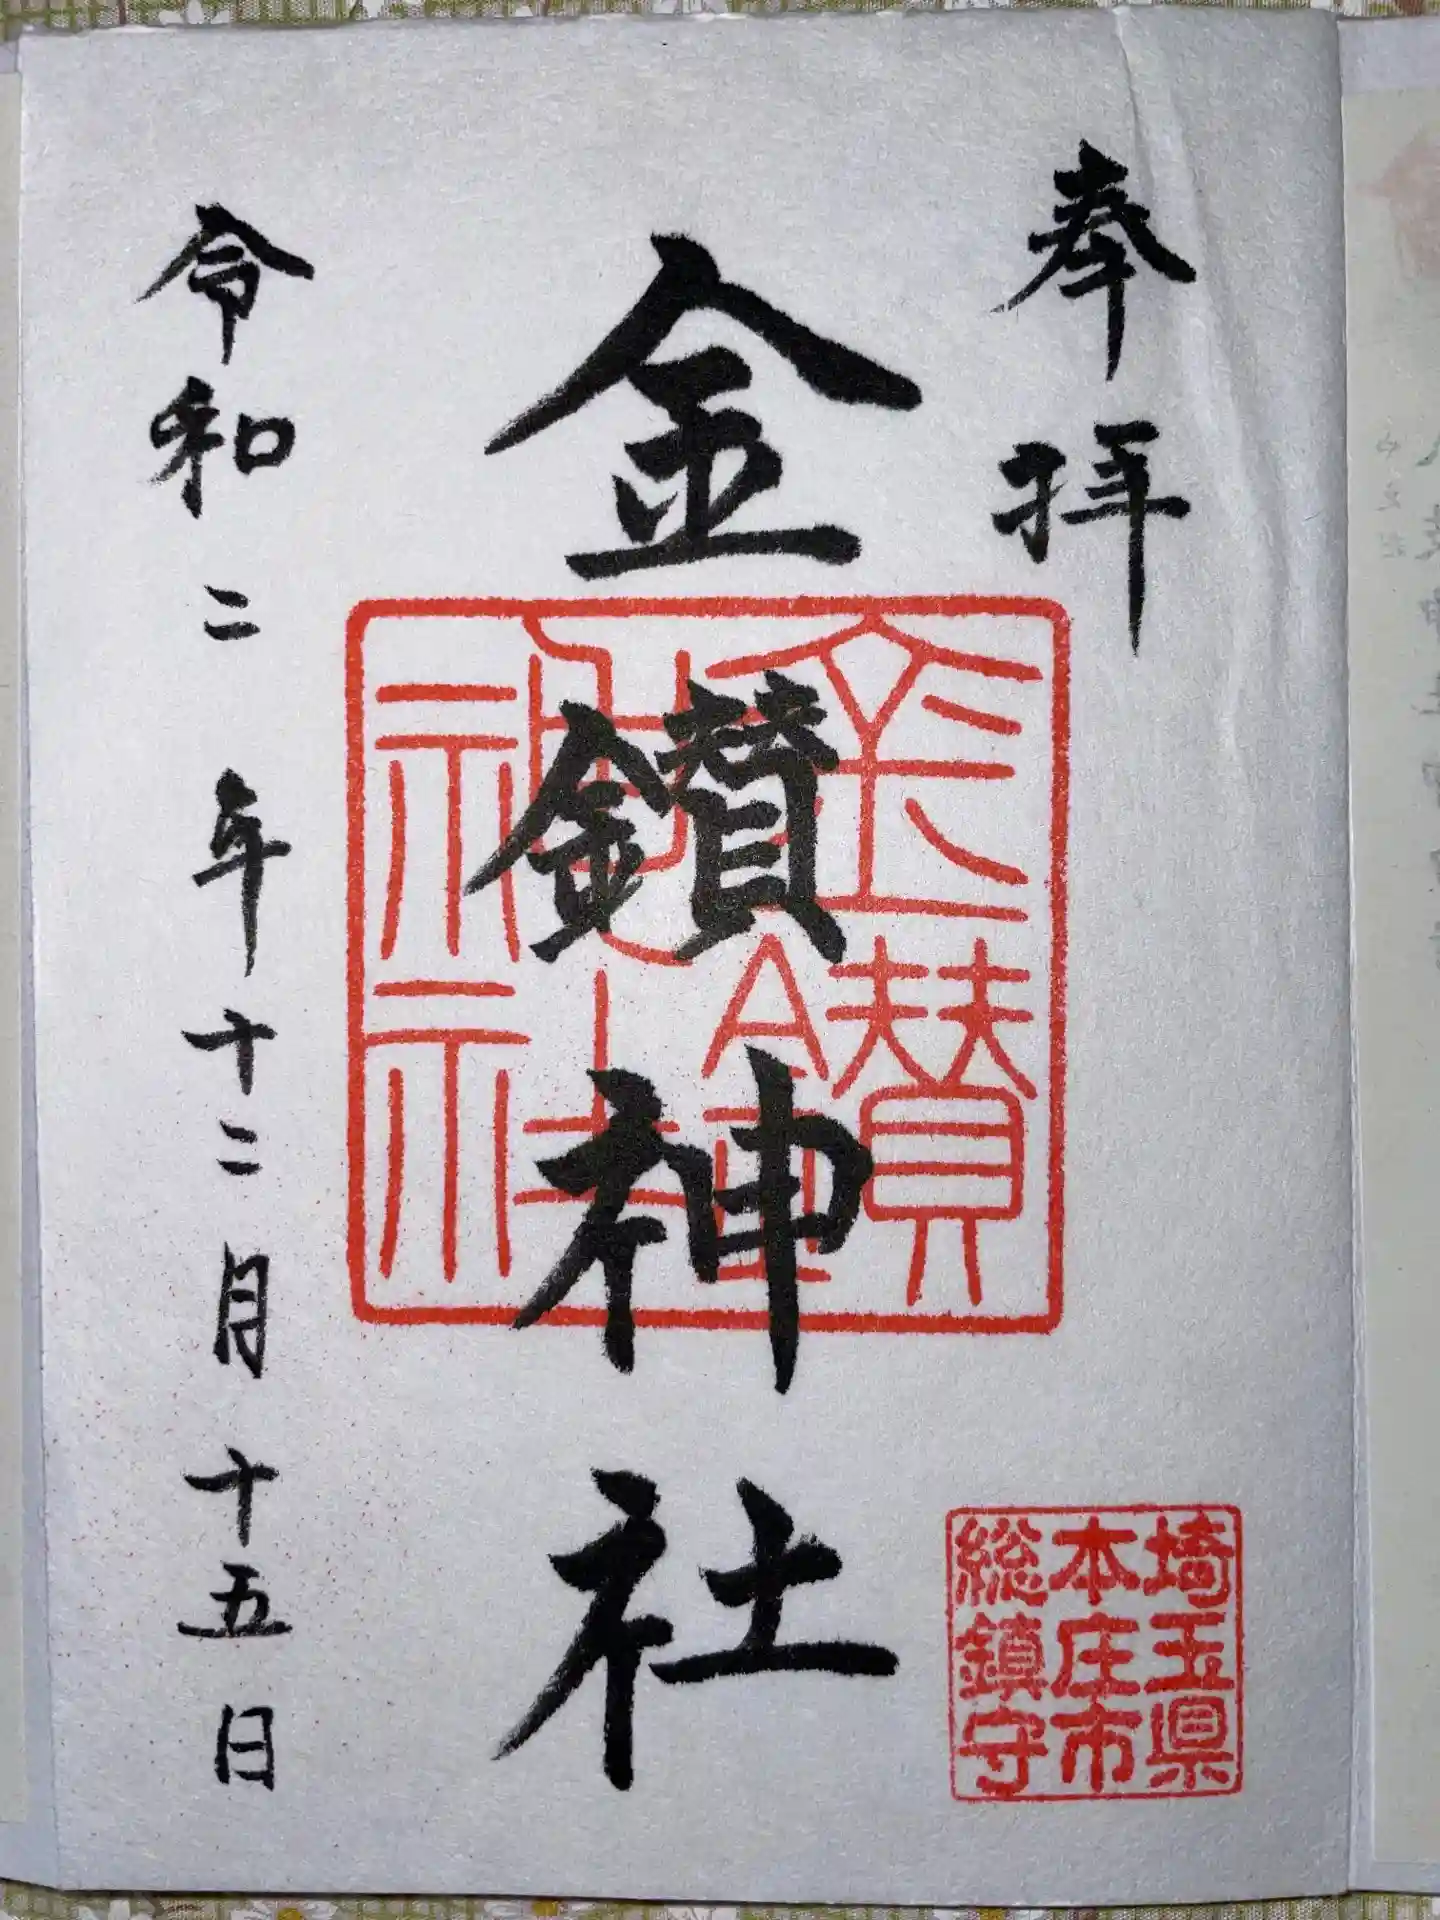 奉拝
金鑚神社
金鑚神社
埼玉県
本庄市
総鎮守
令和二年十二月十五日